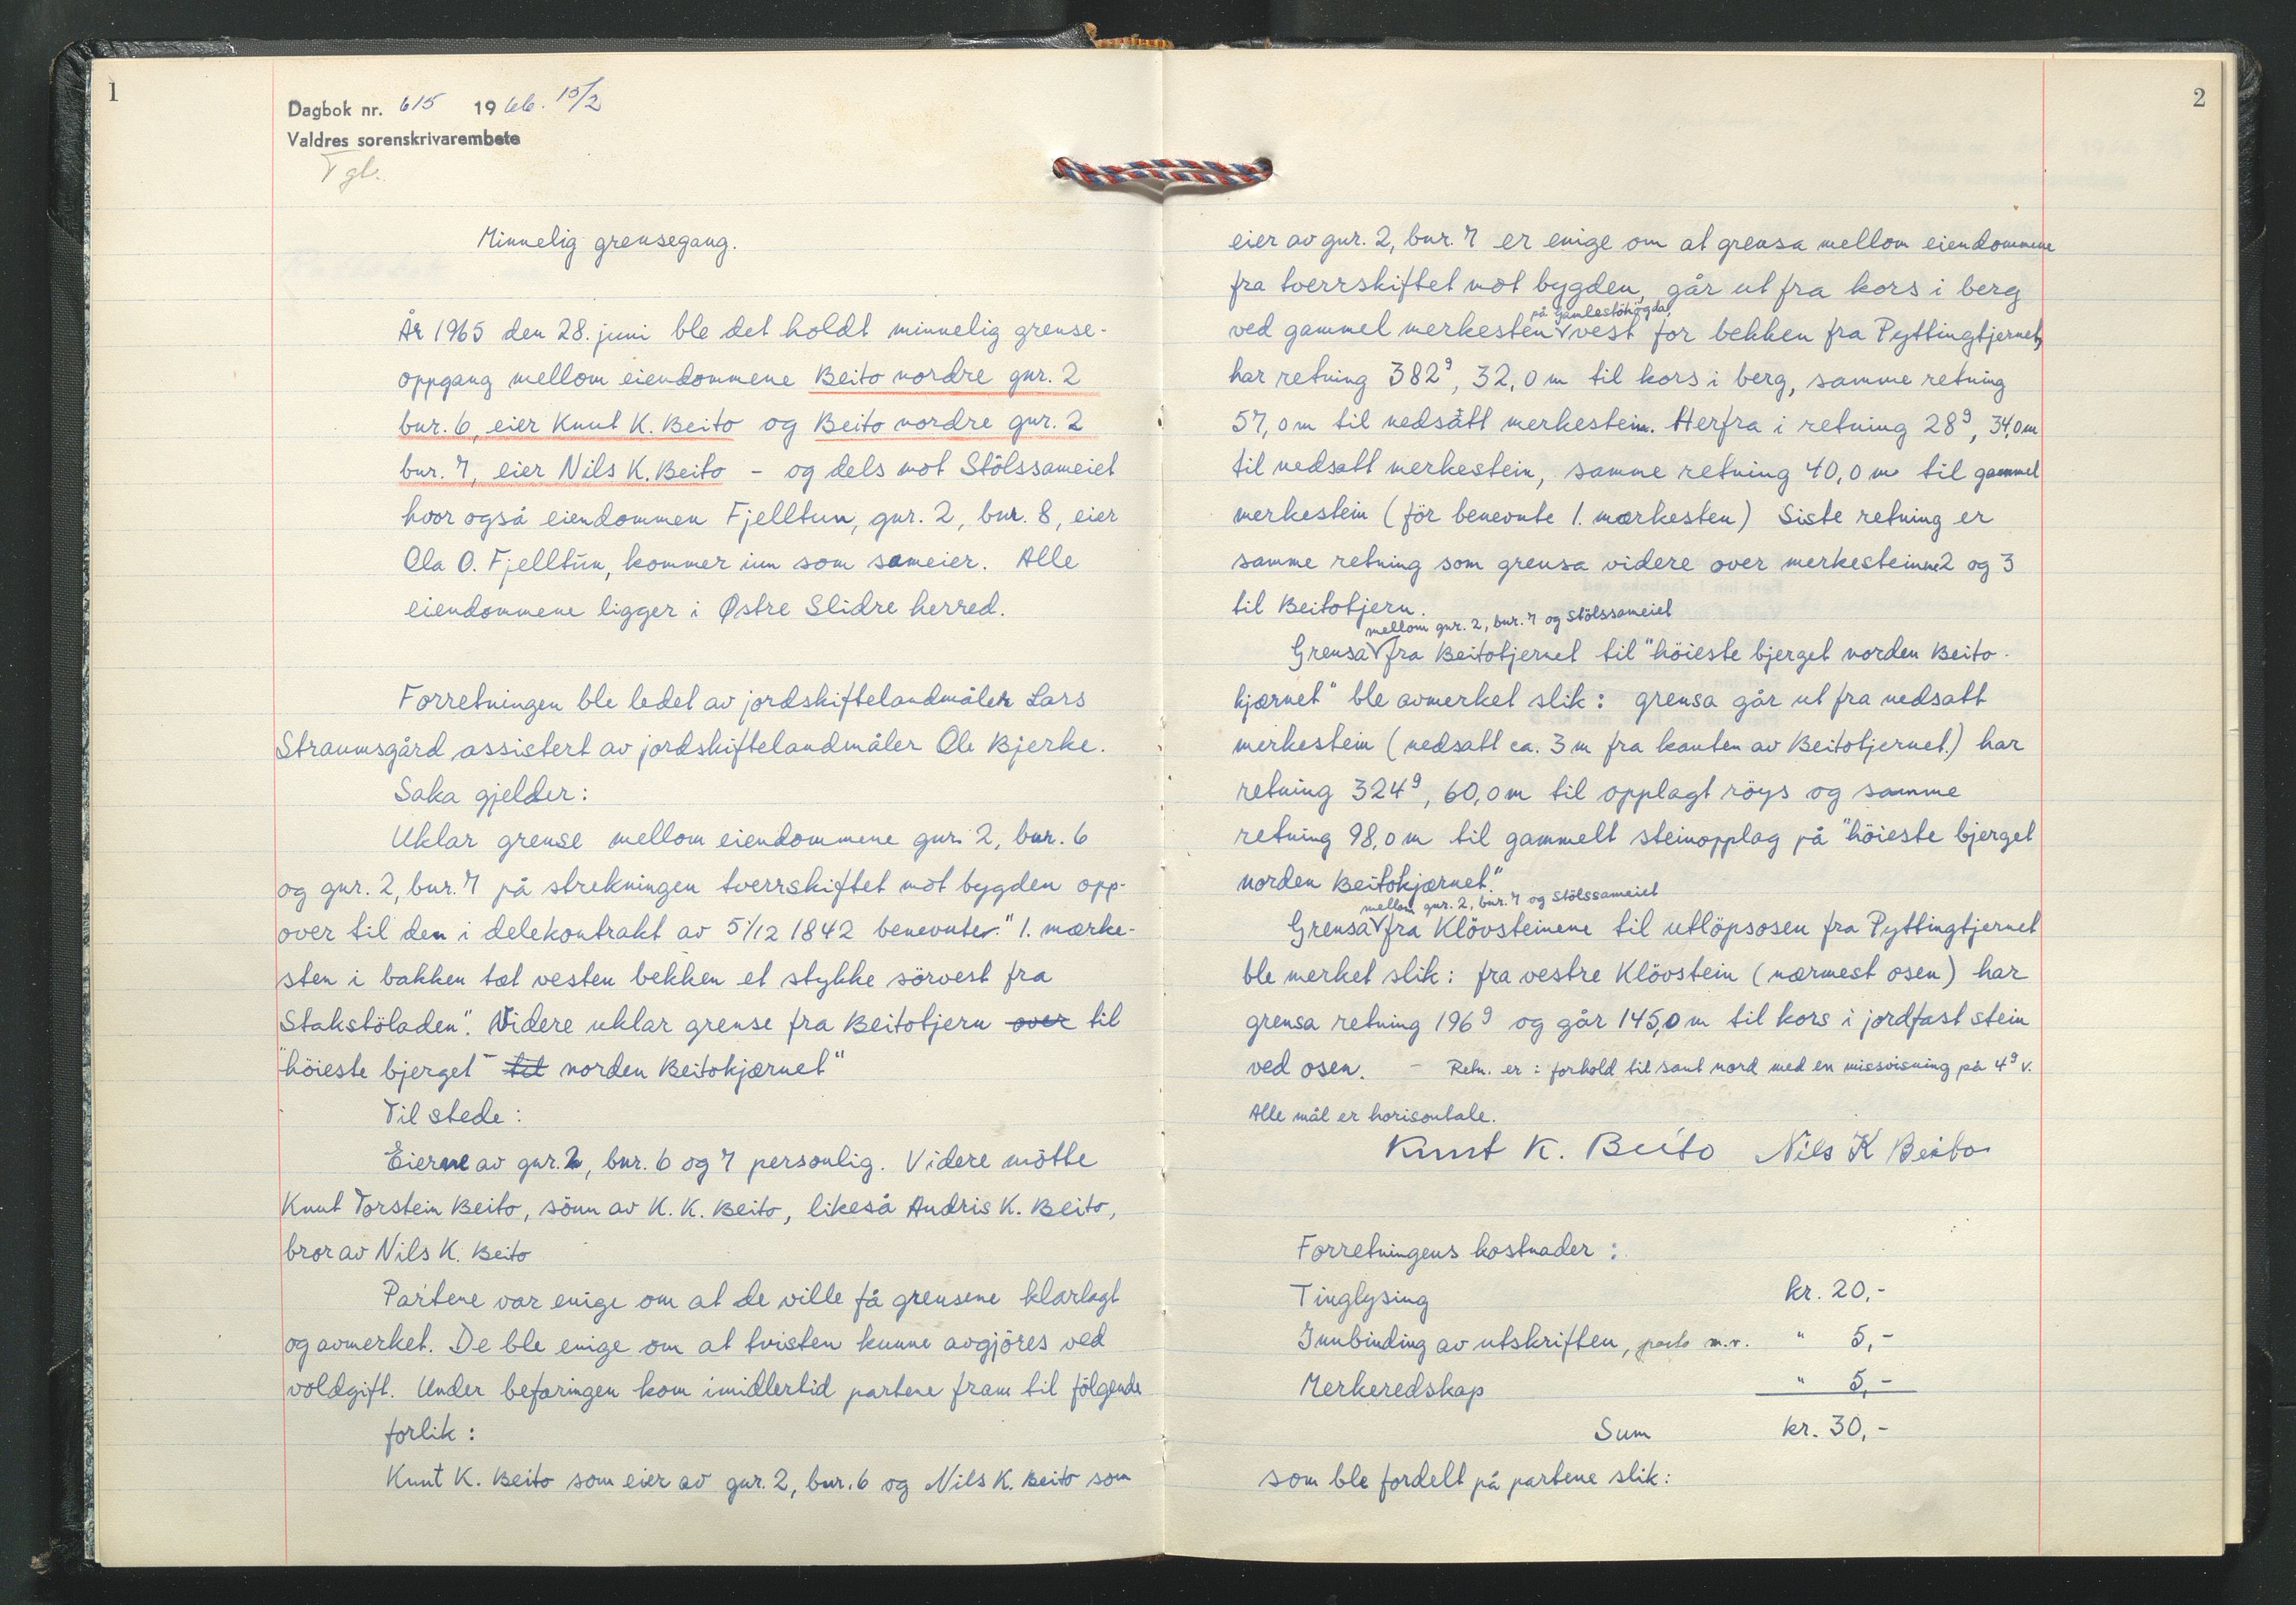 1
Dagbok nr. 615 1966. 15/2
Valdres sorenskrivarembete
Tgl.
Minnelig grensegang.
År 1965 den 28. juni ble det holdt minnelig grense-
oppgang mellom eiendommene Beito nordre gnr. 2
bnr. 6, eier Knut K. Beito og Beito nordre gnr. 2
bnr. 7, eier Nils K. Beito - og dels mot Stölssameiet
hvor også eiendommen Fjelltun, gnr. 2, bnr. 8, eier
Ola O. Fjelltun, kommer inn som sameier. Alle
eiendommene ligger i Østre Slidre herred.
Forretningen ble ledet av jordskiftelandmåler Lars
Straumsgård assistert av jordskiftelandmåler Ole Bjerke.
Saka gjelder:
Uklar grense mellom eiendommene gnr. 2, bnr. 6
og gnr. 2, bnr. 7 på strekningen tverrskiftet mot bygden opp-
over til den i delekontrakt av 5/12 1842 benevnte "1. mærke-
sten i bakken tæt vesten bekken et stykke sörvest fra
Stakstöladen". Videre uklar grense fra Beitotjern over til
"höieste bjerget til norden Beitokjærnet"
Til stede:
Eierne av gnr. 2, bnr. 6 og 7 personlig. Videre mötte
Knut Torstein Beito, sönn av K. K. Beito, likeså Andris K. Beito,
bror av Nils K. Beito
Partene var enige om at de ville få grensene klarlagt
og avmerket. De ble enige om at tvisten kunne avgjöres ved
voldgift. Under befaringen kom imidlertid partene fram til fölgende
forlik:
Knut K. Beito som eier av gnr. 2, bnr. 6 og Nils K. Beito som
2
eier av gnr. 2, bnr. 7 er enige om at grensa mellom eiendommene
fra tverrskiftet mot bygden, går ut fra kors i berg
på Gamlestöhögda,
ved gammel merkesten vest for bekken fra Pyttingtjernet,
har retning 382g, 32,0 m til kors i berg, samme retning
57,0 m til nedsatt merkestein. Herfra i retning 28g, 34,0 m
til nedsatt merkestein, samme retning 40,0 m til gammel
merkestein (för benevnte 1. mærkesten) Siste retning er
samme retning som grensa videre over merkesteinene 2 og 3
til Beitotjern.
mellom gnr. 2, bnr. 7 og Stölssameiet
Grensa fra Beitotjernet til "höieste bjerget norden Beito-
kjærnet" ble avmerket slik: grensa går ut fra nedsatt
merkestein (nedsatt ca. 3 m fra kanten av Beitotjernet.) har
retning 324g, 60,0 m til opplagt röys og samme
retning 98,0 m til gammelt steinopplag på "höieste bjerget
norden Beitokjærnet."
mellom gnr. 2, bnr. 7 og Stölssameiet
Grensa fra Klövsteinene til utlöpsosen fra Pyttingtjernet
ble merket slik: fra vestre Klövstein (nærmest osen) har
grensa retning 196g og går 145,0 m til kors i jordfast stein
ved osen. - Retn. er i forhold til sant nord med en missvisning på 4g v.
Alle mål er horisontale.
Knut K. Beito Nils K Beito
Forretningens kostnader:
Tinglysing kr. 20,-
Innbinding av utskriften, porto m.v. " 5,-
Merkeredskap " 5,-
Sum kr. 30,-
som ble fordelt på partene slik: